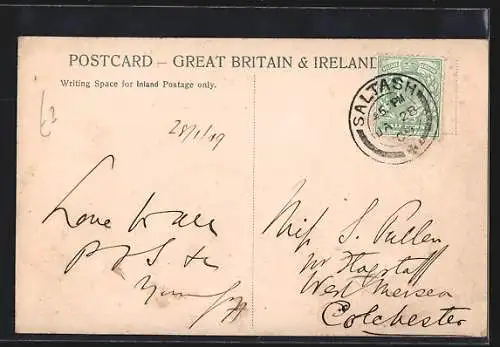 POSTCARD – GREAT BRITAIN & IRELAND
Writing Space for Inland Postage only.
£2
SALTASH
5 PM
JA 28
Love to all
Miss S. Pullen
nr Flagstaff
West Mersea
Colchester